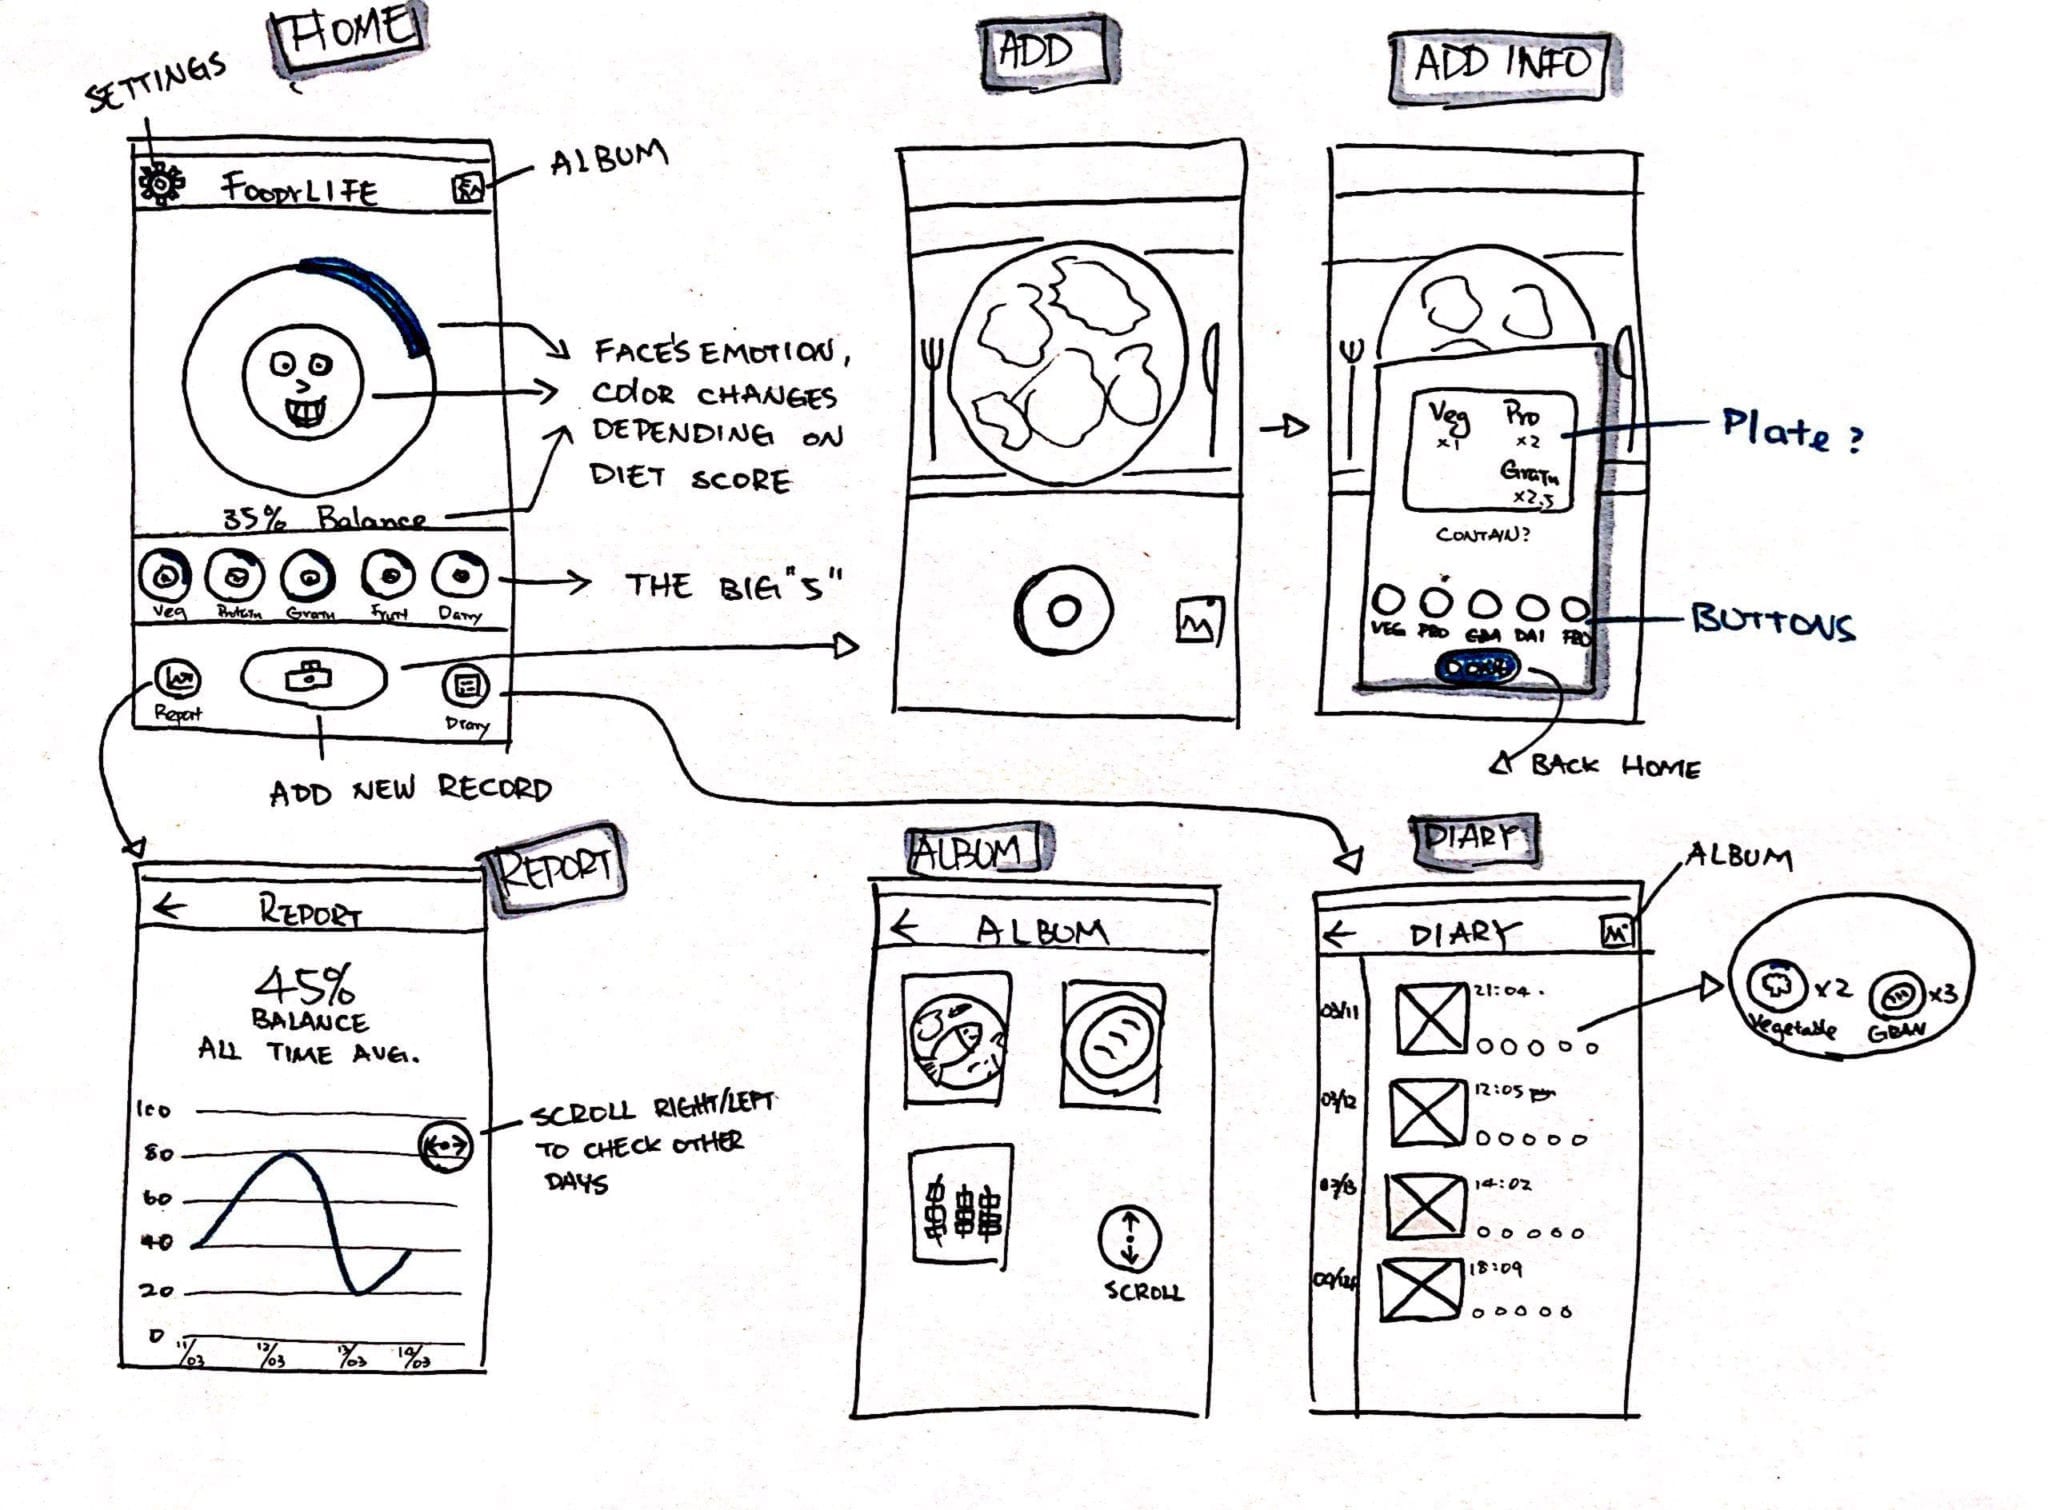 HOME
SETTINGS
FOODYLIFE
ALBUM
FACE'S EMOTION,
COLOR CHANGES
DEPENDING ON
DIET SCORE
35% Balance
Veg
Protein
Grain
Fruit
Dairy
THE BIG "5"
Report
Diary
ADD NEW RECORD
ADD
ADD INFO
Veg
x1
Pro
x2
Grain
x2.5
Plate?
CONTAIN?
VEG
PRO
GRA
DAI
BUTTONS
DONE
BACK HOME
REPORT
REPORT
45%
BALANCE
ALL TIME AVG.
100
80
60
40
20
0
11/03
12/03
13/03
14/03
SCROLL RIGHT/LEFT
TO CHECK OTHER
DAYS
ALBUM
ALBUM
SCROLL
DIARY
ALBUM
DIARY
03/11
21:04
03/12
12:05
03/13
14:02
18:09
x2
Vegetable
x3